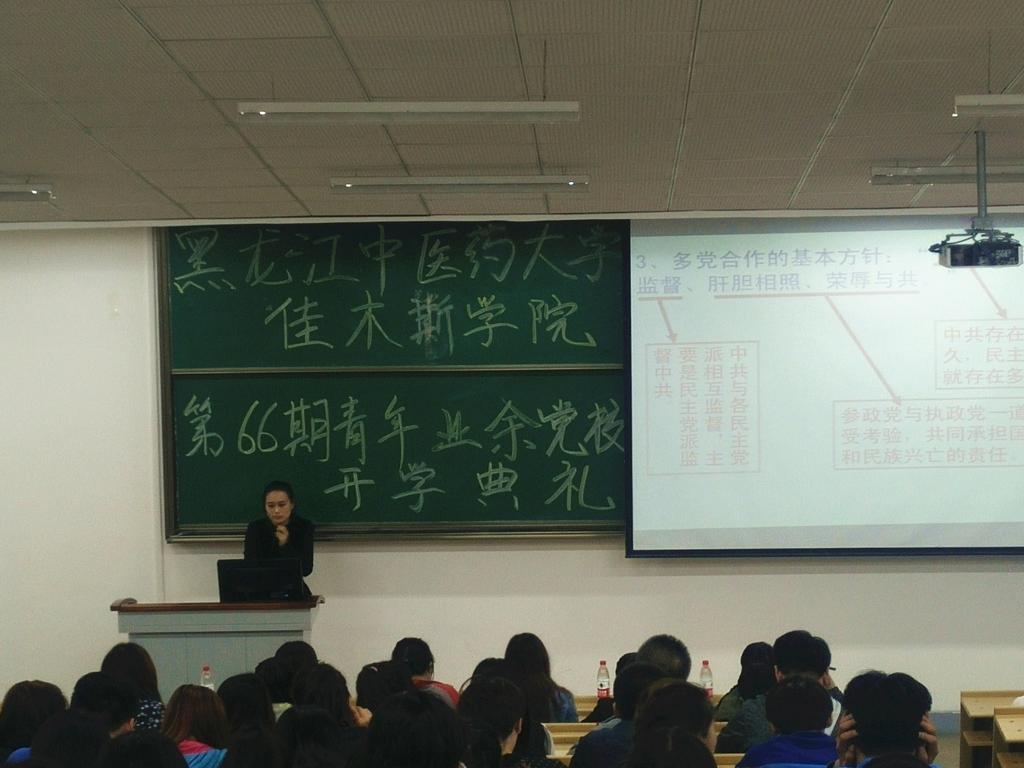 黑龙江中医药大学
佳木斯学院
第66期青年业余党校
开学典礼
3、多党合作的基本方针：“
监督、肝胆相照、荣辱与共
中共与各民主党
派相互监督，主
要是民主党派监
督中共
中共存在
久，民主
就存在多
参政党与执政党一道
受考验，共同承担国
和民族兴亡的责任。